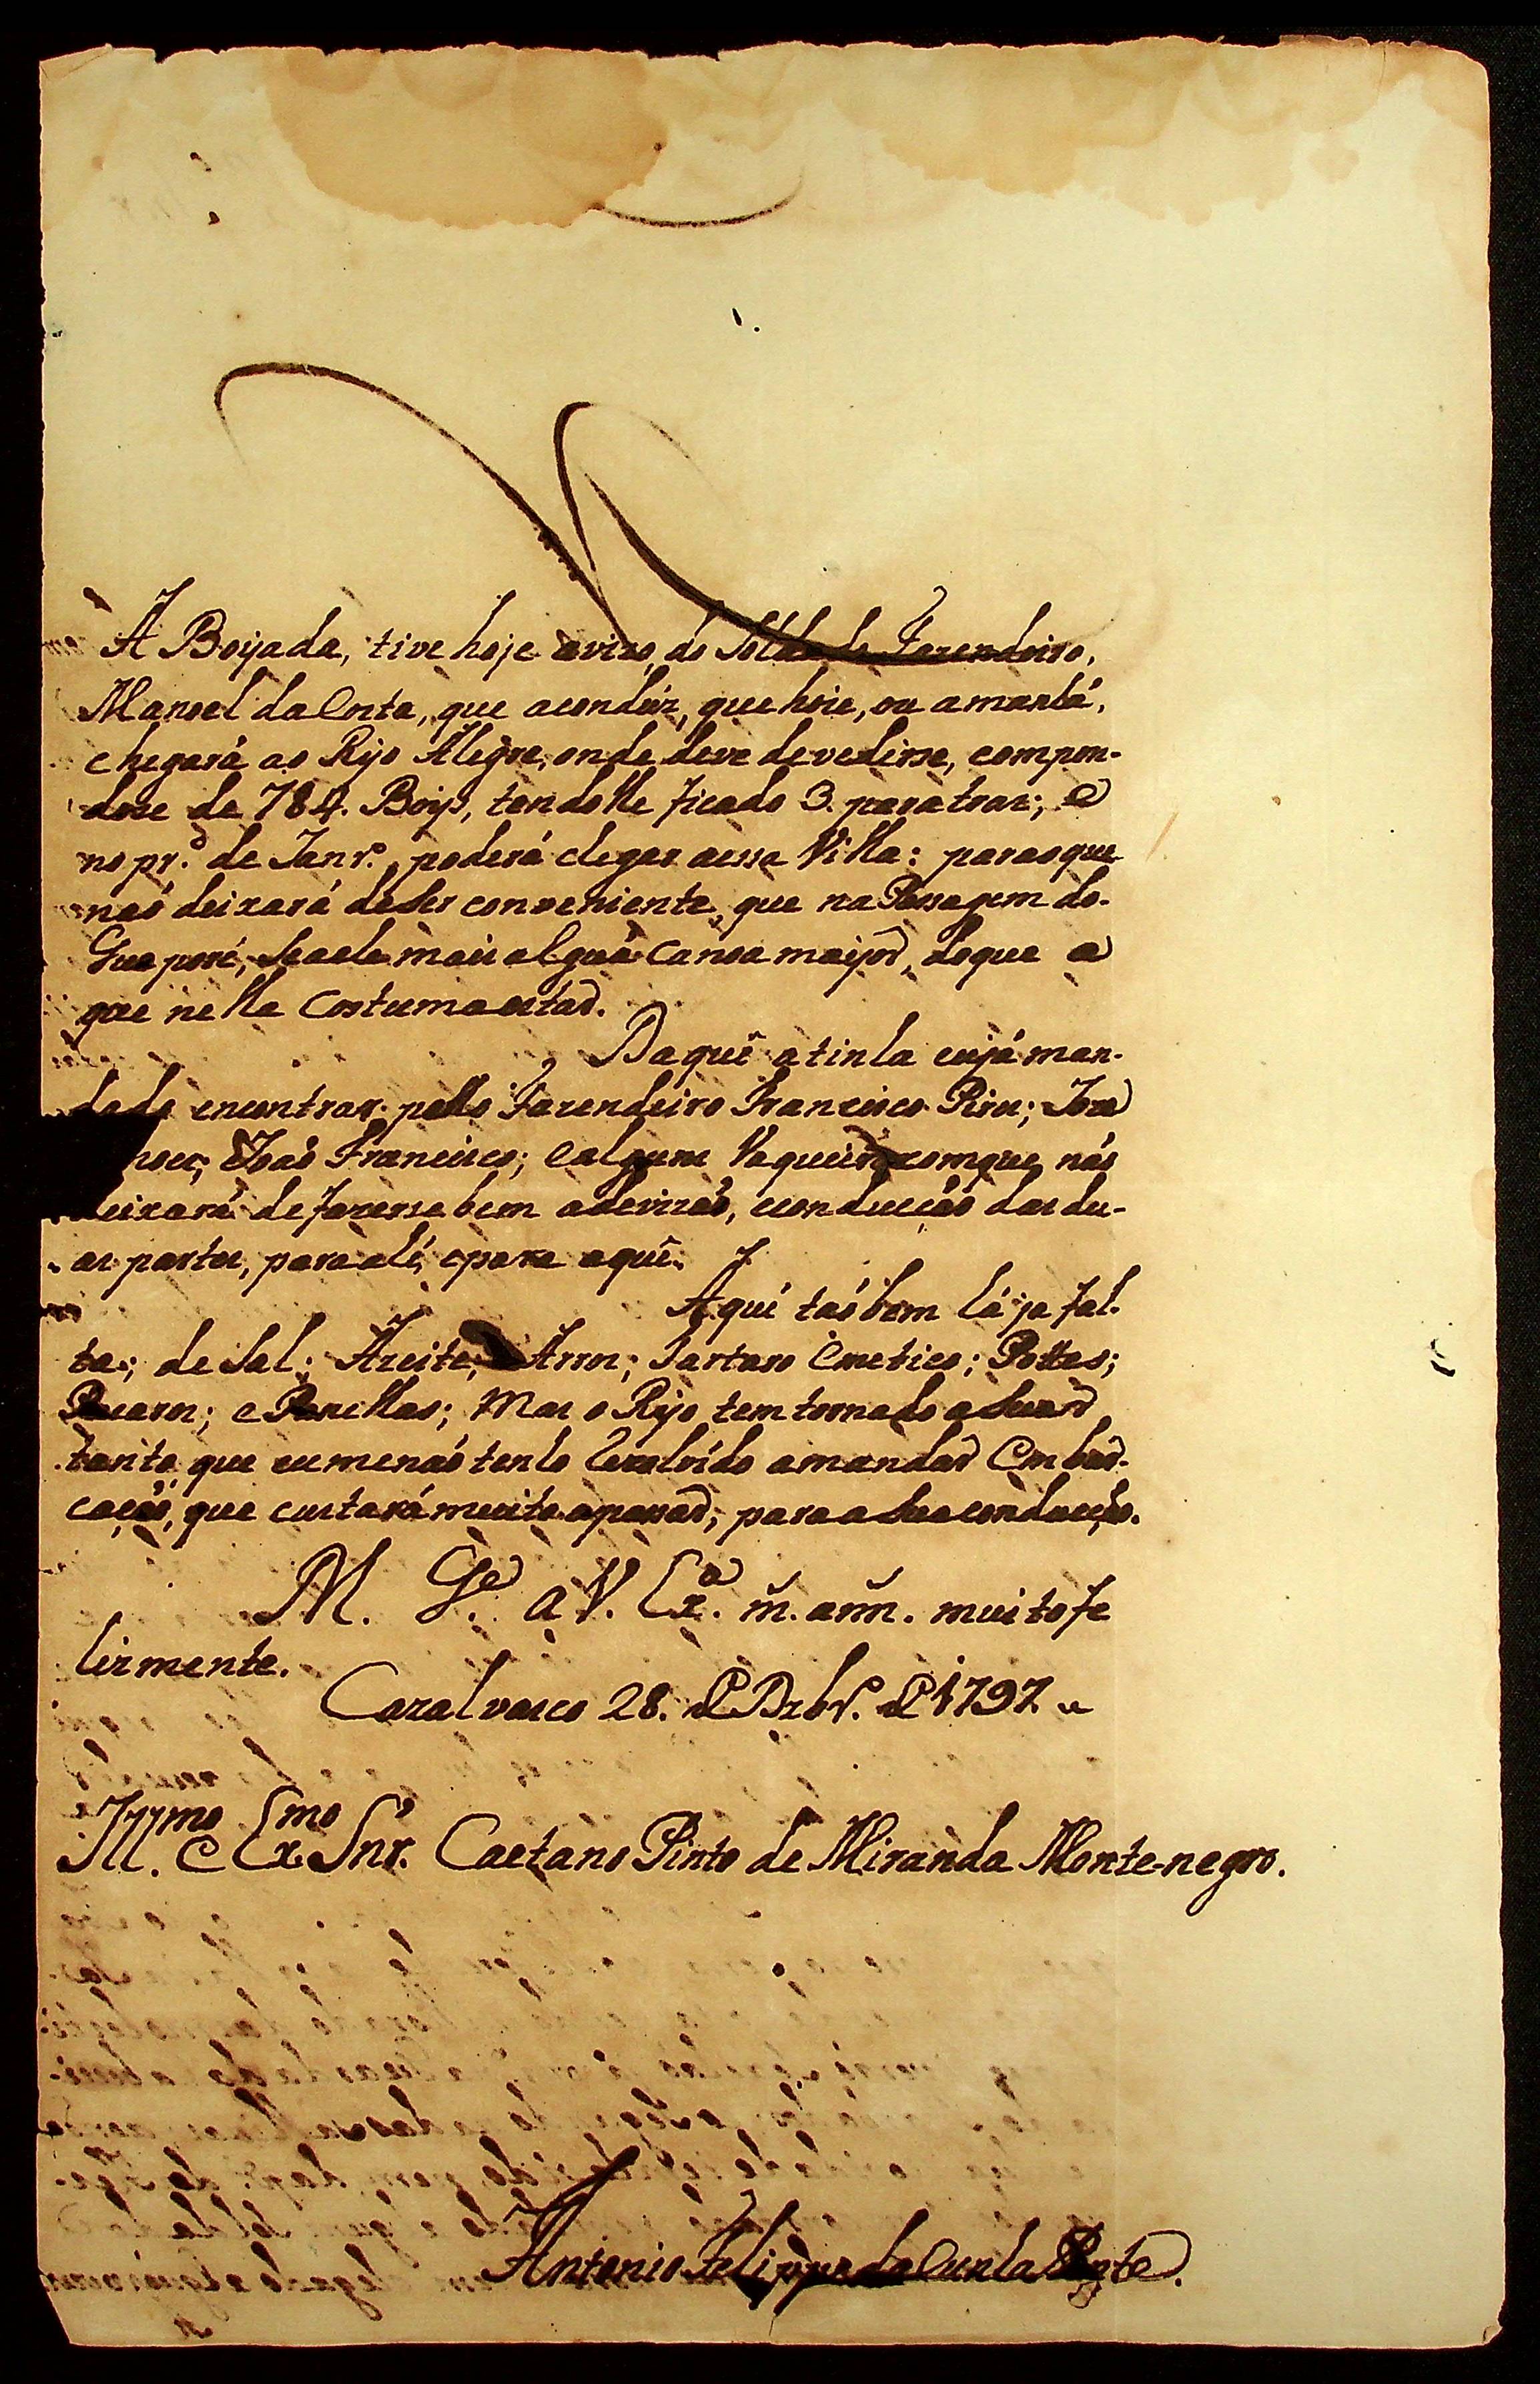 A Boyada, tive hoje avizo, do Soldado Fazendeiro,
Manoel da Costa, que acondúz, que hoie, ou amanhá,
chegará ao Rijo Alegre, onde deve devedirse, compon-
dose de 784. Boijs, tendolhe ficado 3. para traz; e
no pr.º de Janr.º poderá chegar aessa Villa: para o que
naó deixará deser conveniente, que na Passagem do
Guaporé, se ache mais alguã Canoa maijor, do que a
que nella Costuma estar.
Daquî atinha eu já man-
dado encontrar pello Fazendeiro Francisco Pires; Joze
João Francisco; e alguns Vaqueiros com que naó
deixará de fazerse bem a devizaó, e conducçaó das du-
as partes, para alé, e para aquî.
Aquí taóbem há ja fal-
ta; de Sal; Azeite; Arroz; Tartaro Emetico; Pottes;
Pucaros; e Panellas; Mas o Rijo tem tornado a Secar
tanto que eu me naó tenho Rezolvído amandar Embar-
caçaó, que custará muito apassar; para a Sua conducçaõ.
M. G.e a V. Ex.a m. ann. muito fe
lizmente.
Cazalvasco 28. de Dzbr.º de 1797.
Ill.mo e Ex.mo Snr. Caetano Pinto de Miranda Monte-negro.
Antonio Felippe da Cunha Ponte.